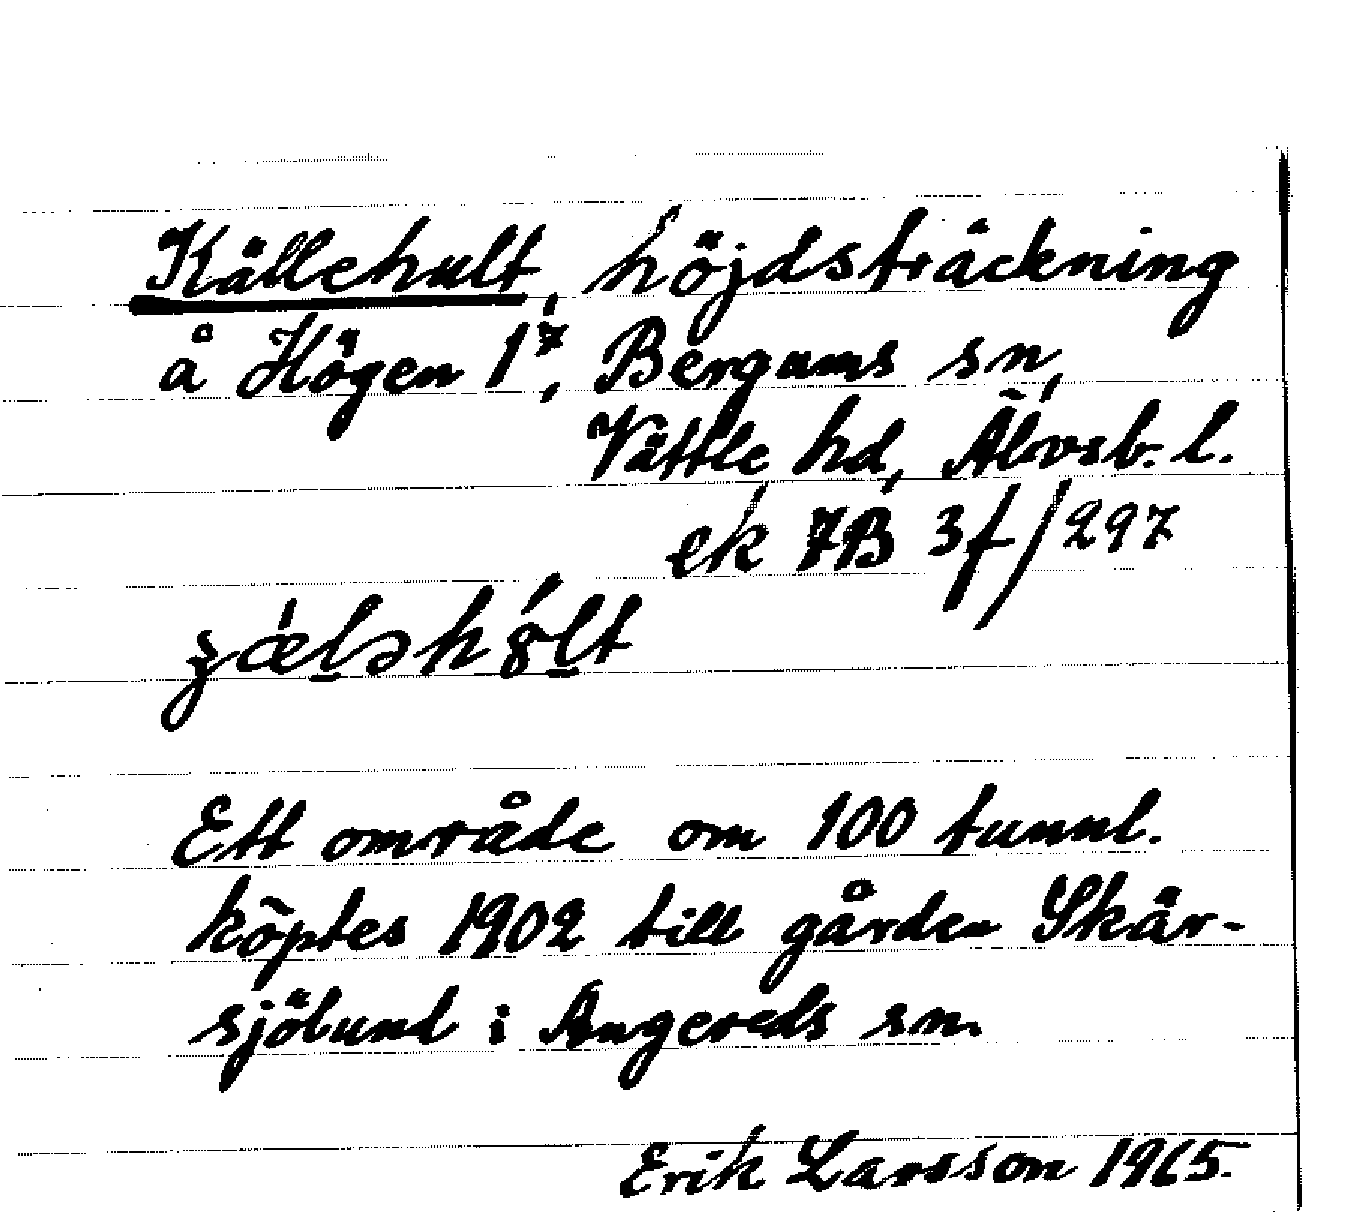 Källehult, höjdsträckning
å Högen 1⁷, Bergums sn,
Vättle hd, Älvsb. l.
ek 7B 3f/297
Ett område om 100 tunnl.
köptes 1902 till gården Skär-
sjölund i Angereds sn.
Erik Larsson 1965.